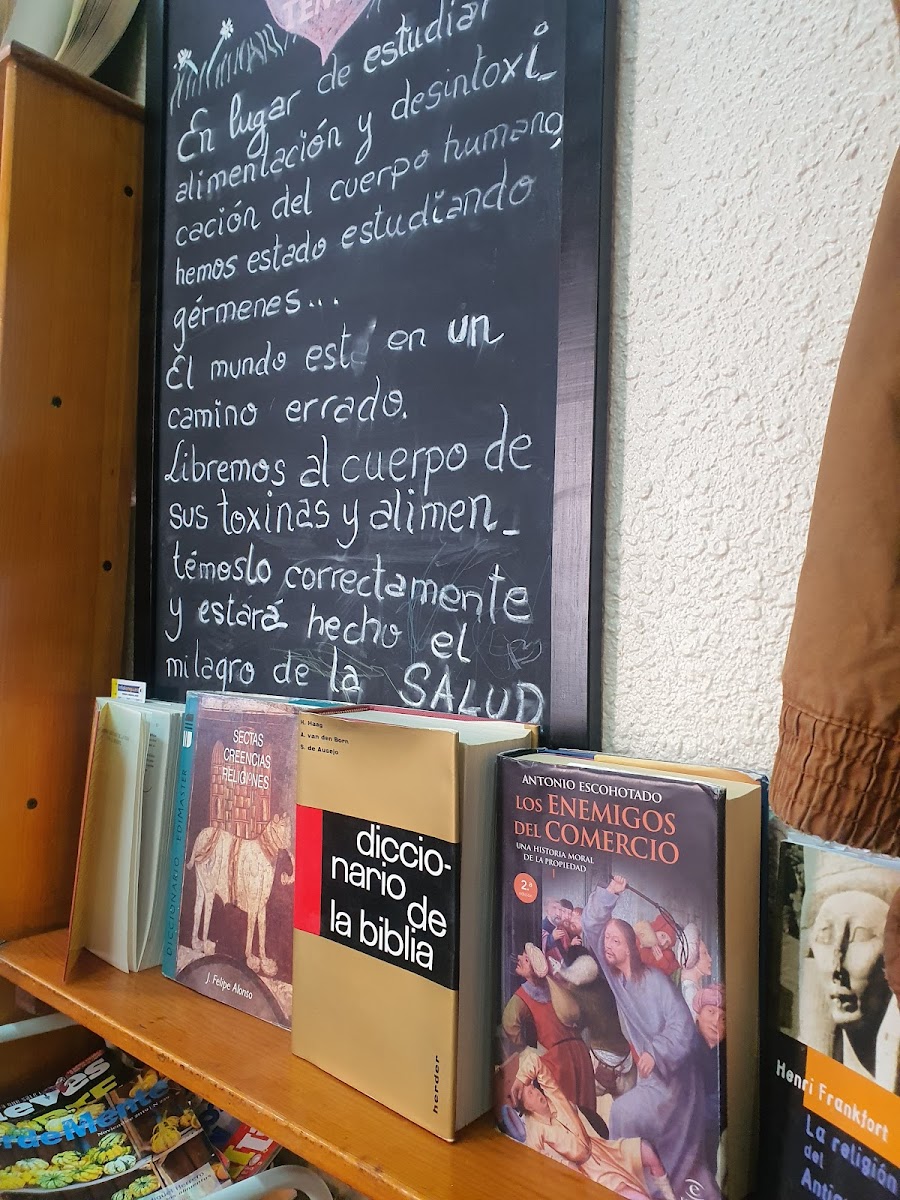 En lugar de estudiar
alimentación y desintoxi_
cación del cuerpo humano,
hemos estado estudiando
gérmenes...
El mundo está en un
camino errado.
Libremos al cuerpo de
sus toxinas y alimen_
témoslo correctamente
y estará hecho el
milagro de la SALUD
DICCIONARIO EDIMASTER
SECTAS
CREENCIAS
RELIGIONES
J. Felipe Alonso
H. Haag
A. van den Born
S. de Ausejo
diccio-
nario
de
la biblia
herder
ANTONIO ESCOHOTADO
LOS ENEMIGOS
DEL COMERCIO
UNA HISTORIA MORAL
DE LA PROPIEDAD
I
2.ª
Henri Frankfort
La religión
del